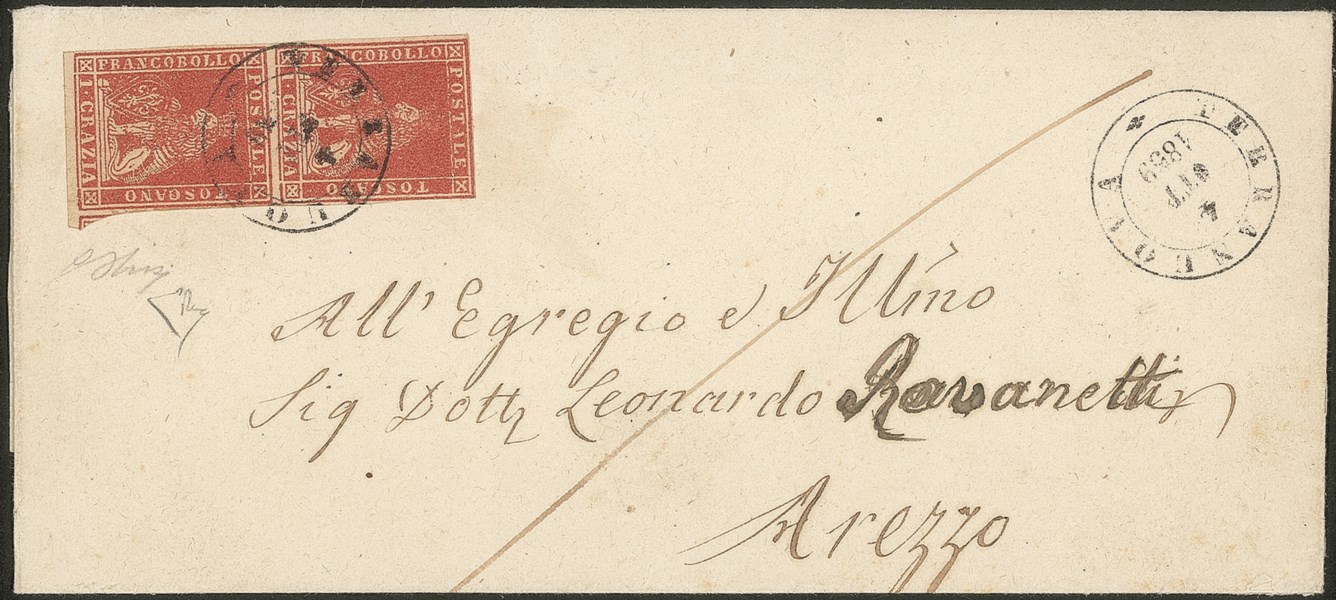 FRANCOBOLLO
POSTALE
TOSCANO
1 CRAZIA
FRANCOBOLLO
POSTALE
TOSCANO
1 CRAZIA
TERRANUOVA
4
OTT
1859
All' Egregio e Illmo
Sig Dott Leonardo Ravanetti
Arezzo